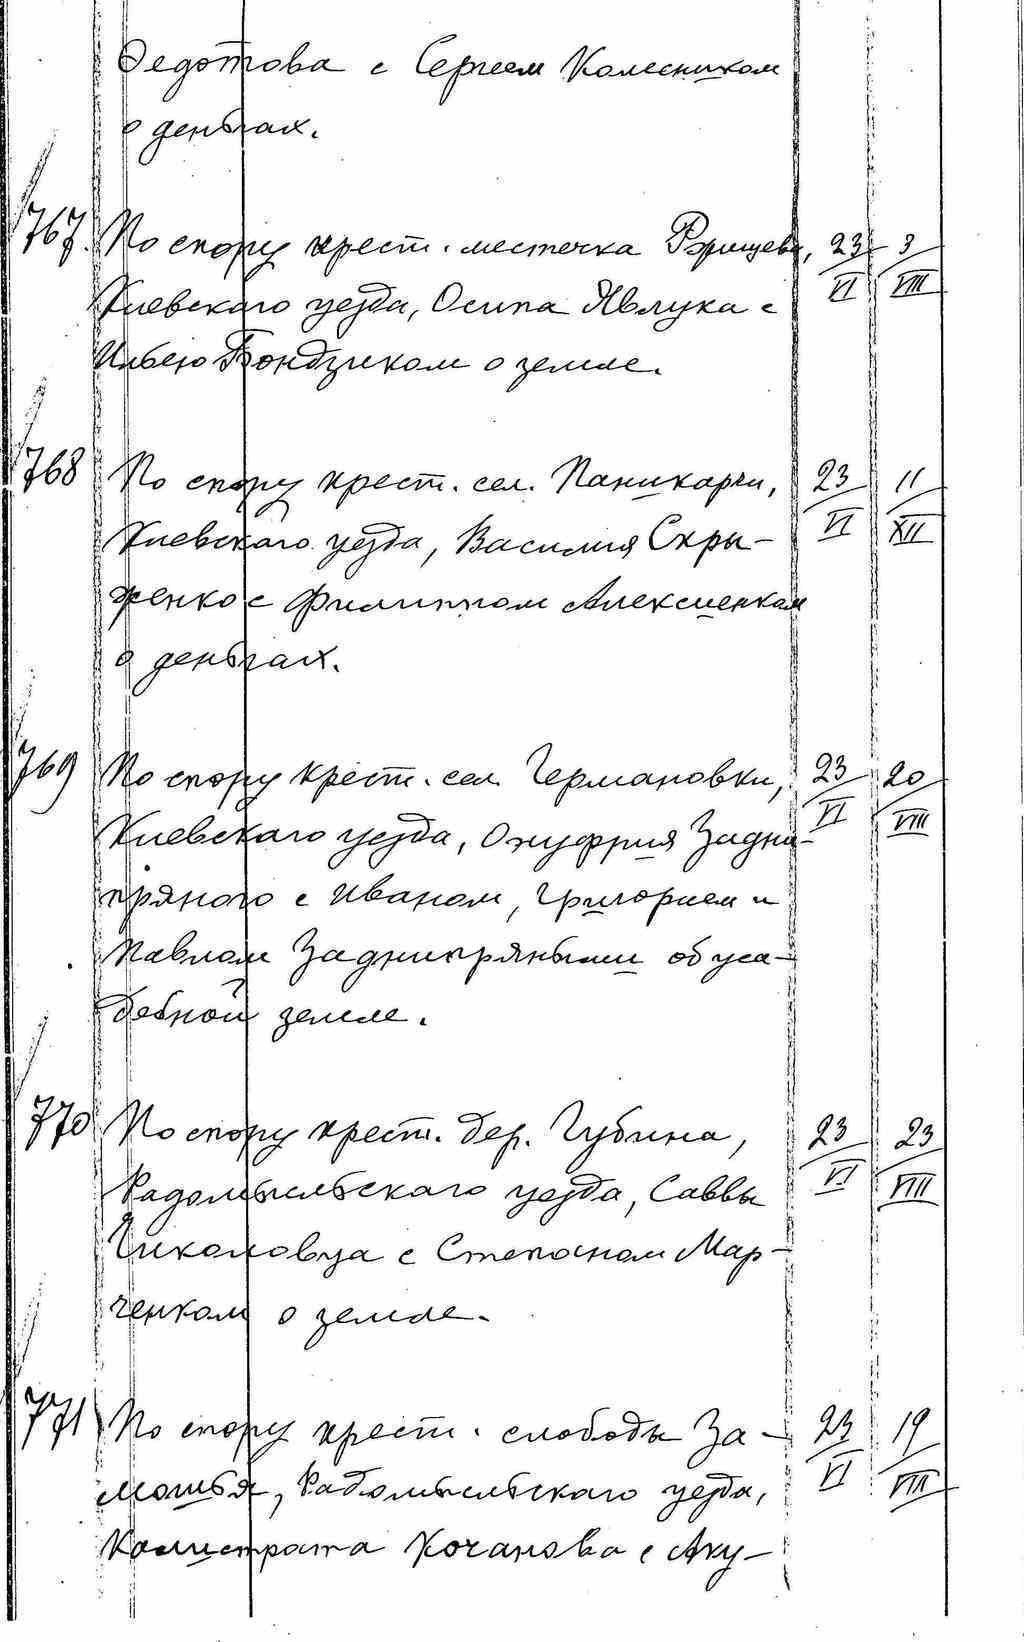 Федотова с Сергеем Колесником
о деньгах.
767. По спору крест. местечка Ржищева, 23/VI 3/VIII
Киевского уезда, Осипа Явлука с
Ильею Бондзиком о земле.
768 По спору крест. сел. Паникарчи, 23/VI 11/XII
Киевского уезда, Василия Скры-
женко с Филиппом Алексиенком
о деньгах.
769 По спору крест. сел. Германовки, 23/VI 20/VIII
Киевского уезда, Онуфрия Задни-
пряного с Иваном, Григорием и
Павлом Заднипряными об уса-
дебной земле.
770 По спору крест. дер. Губина, 23/VI 23/VIII
Радомысльского уезда, Саввы
с Степаном Мар-
ченком о земле.
771 По спору крест. слободы За- 23/VI 19/VIII
мошья, Радомысльского уезда,
Калистрата Кочанова с Аку-